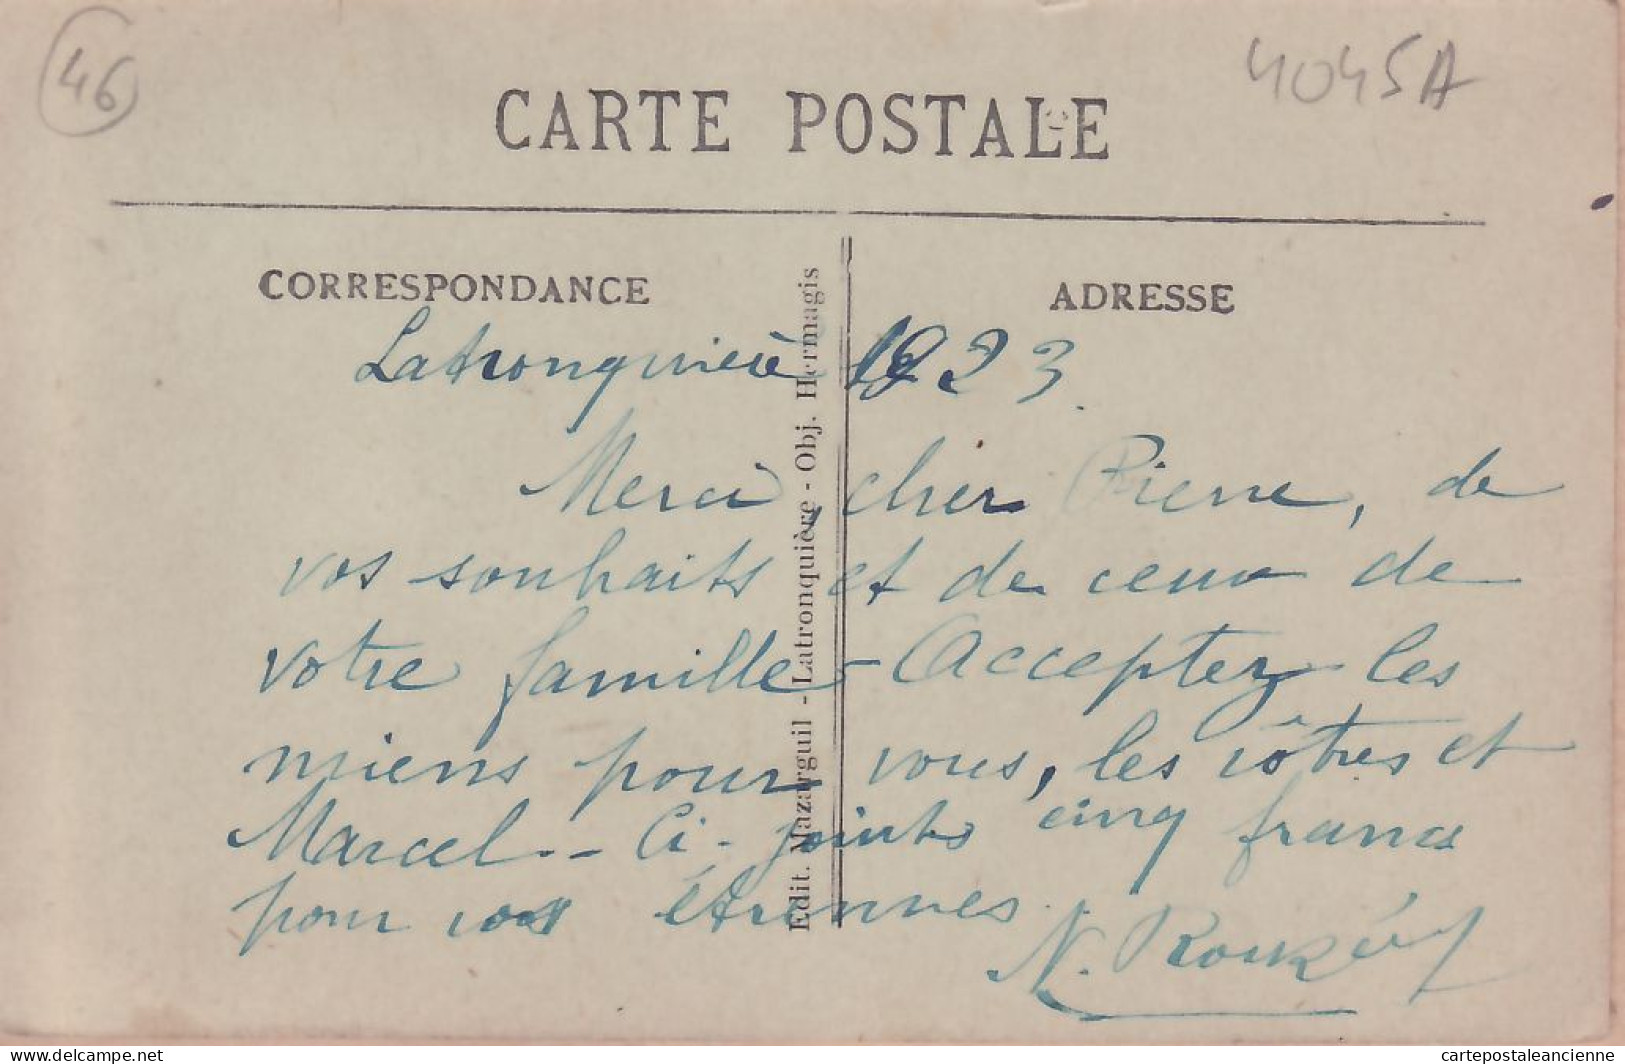 46
4045A
CARTE POSTALE
CORRESPONDANCE
ADRESSE
Edit. Mazarguil - Latronquière - Obj. Hermagis
Latronquière 1923.
Merci, cher Pierre, de
vos souhaits et de ceux de
votre famille - Acceptez les
miens pour vous, les vôtres et
Marcel -- Ci-joints cinq francs
pour vos étrennes.
N.
delcampe.net
cartepostaleancienne